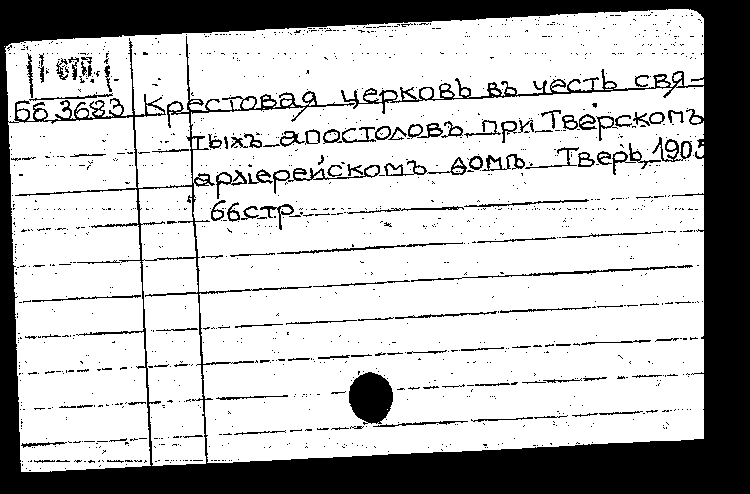 1 ОТД.
Бб,3683 Крестовая церковь въ честь свя-
тыхъ апостоловъ при Тверскомъ
архіерейскомъ домѣ. Тверь, 1905
66 стр.